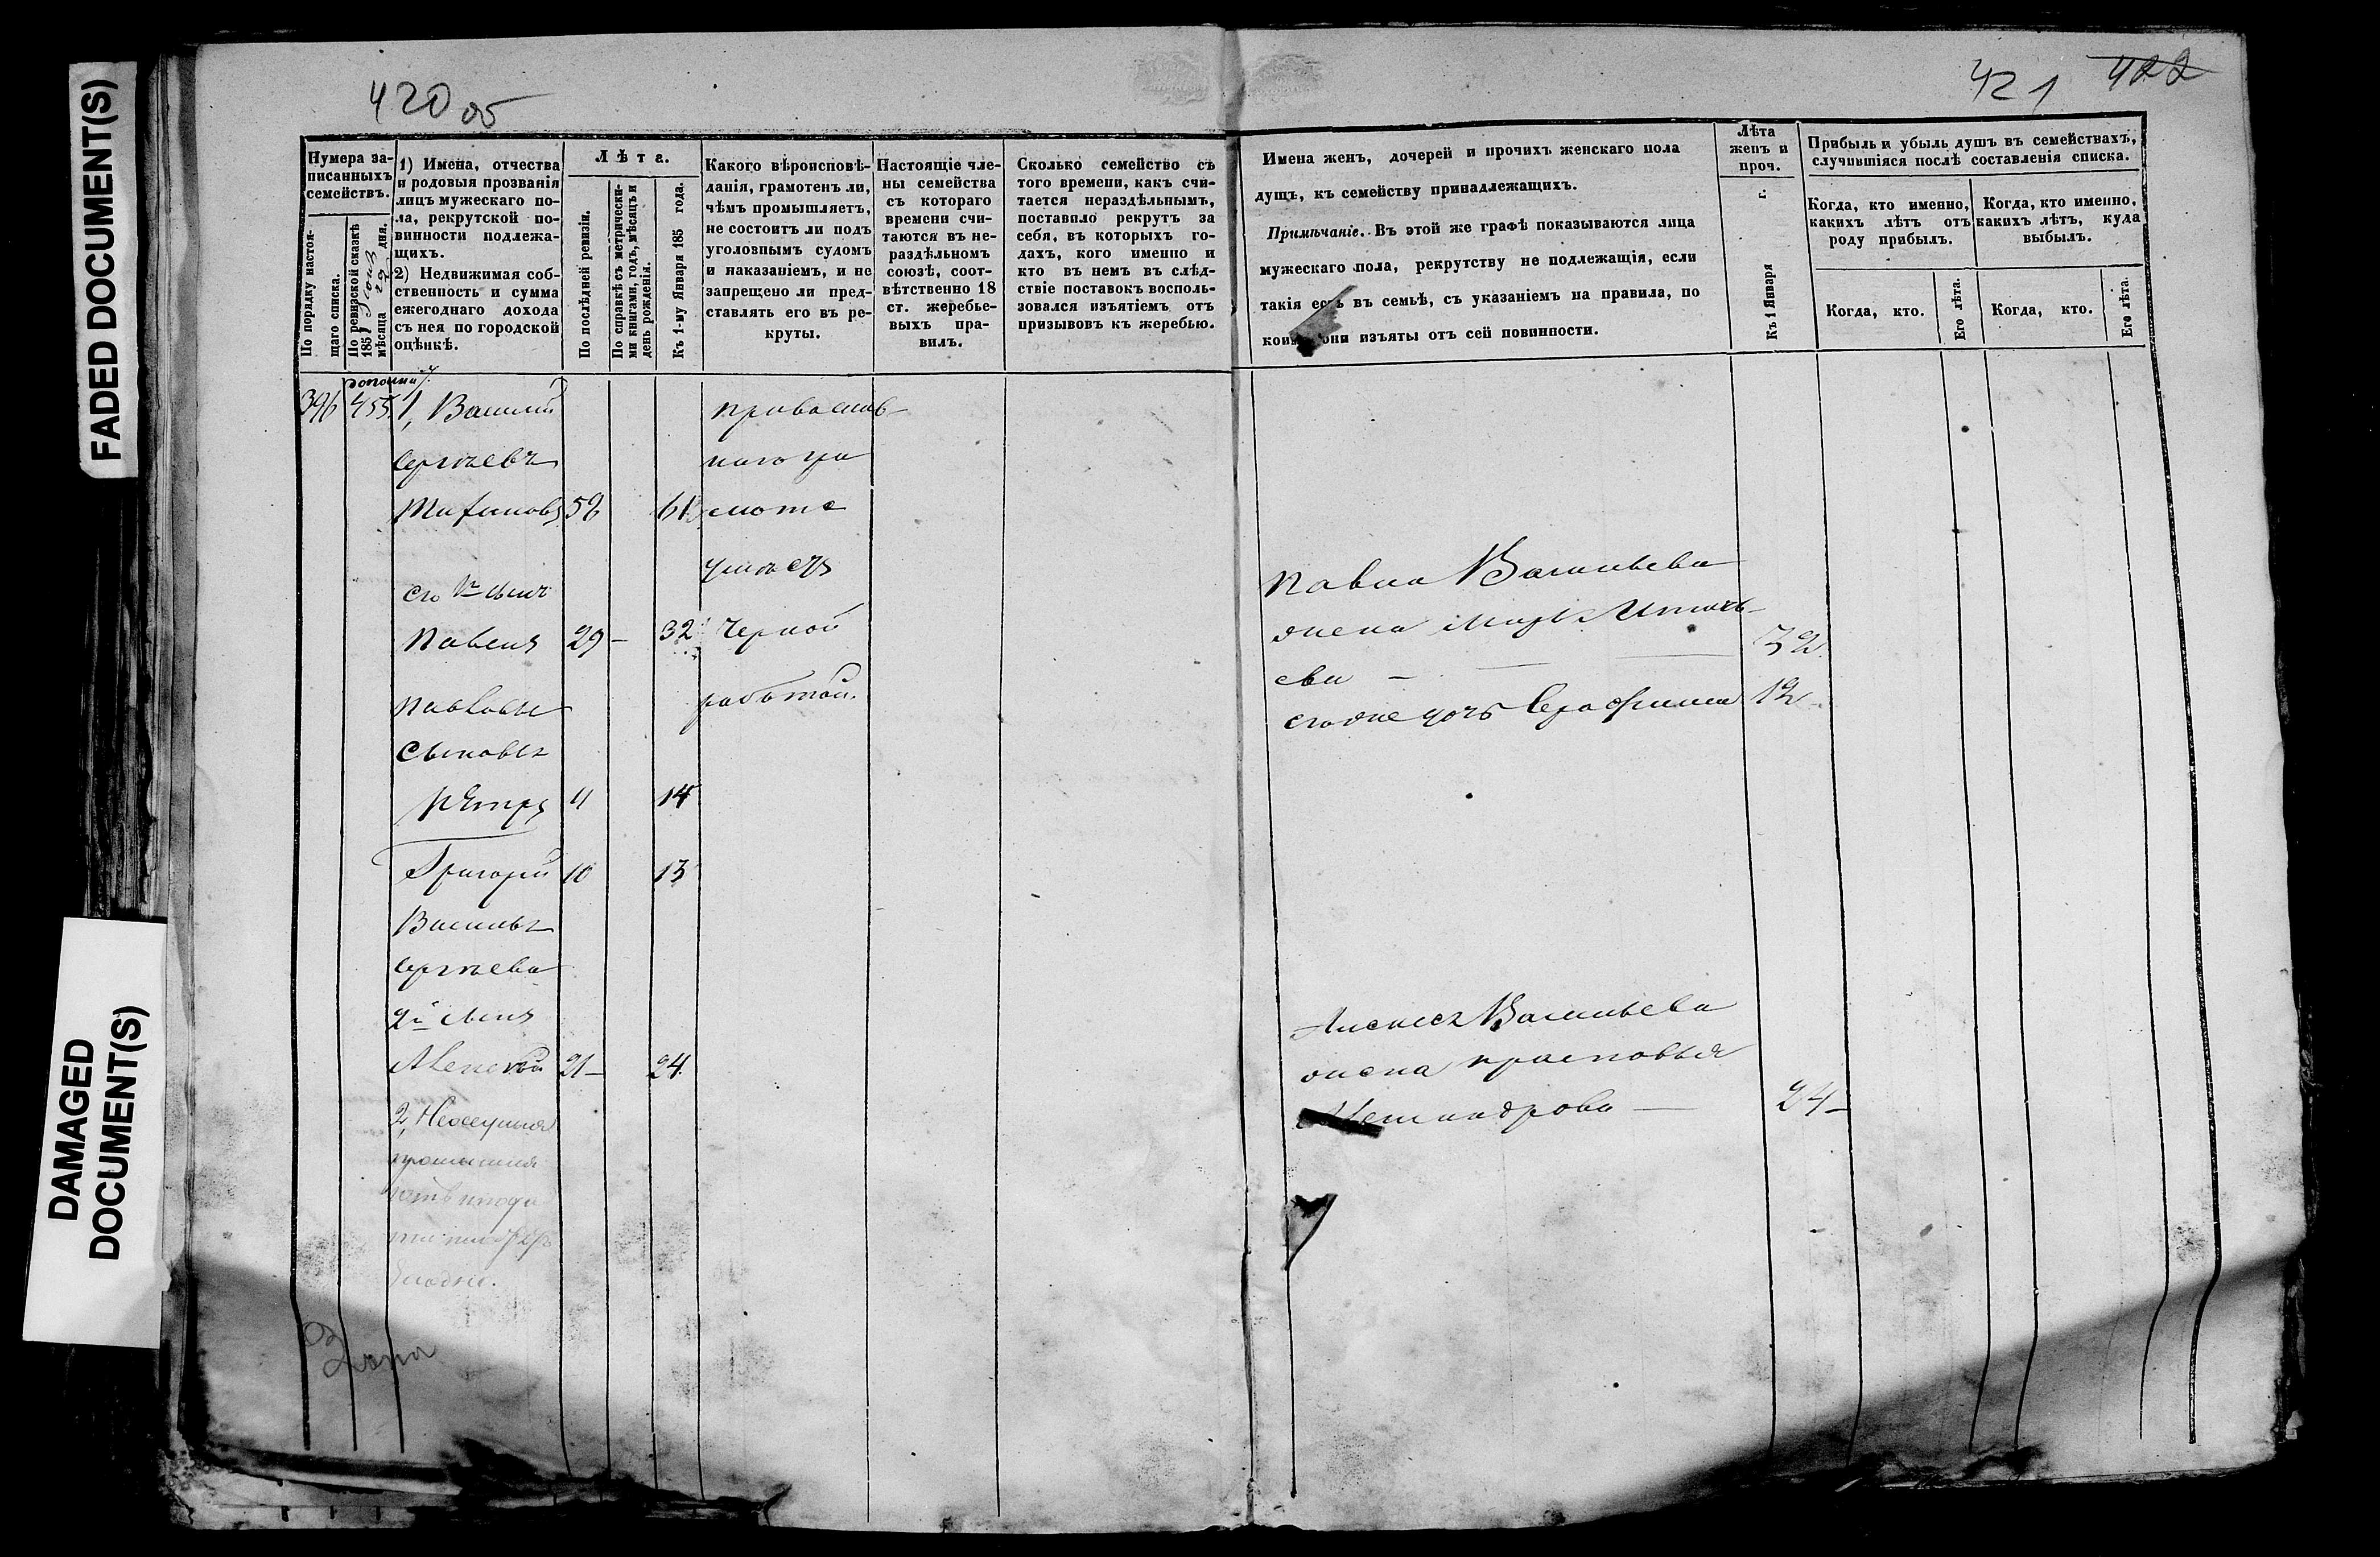 FADED DOCUMENT(S)
DAMAGED
DOCUMENT(S)
420 об
421 422
Нумера за-
писанныхъ
семействъ.
По порядку настоя-
щаго списка.
По ревизской сказкѣ
185
мѣсяца 29 дня.
1) Имена, отчества
и родовыя прозванія
лицъ мужескаго по-
ла, рекрутской по-
винности подлежа-
щихъ.
2) Недвижимая соб-
ственность и сумма
ежегоднаго дохода
съ нея по городской
оцѣнкѣ.
Лѣта.
По послѣдней ревизіи.
По справкѣ съ метрически-
ми книгами, годъ, мѣсяцъ и
день рожденія.
Къ 1-му Января 185 года.
Какого вѣроисповѣ-
данія, грамотенъ ли,
чѣмъ промышляетъ,
не состоитъ ли подъ
уголовнымъ судомъ
и наказаніемъ, и не
запрещено ли пред-
ставлять его въ ре-
круты.
Настоящіе чле-
ны семейства
съ котораго
времени счи-
таются въ не-
раздѣльномъ
союзѣ, соот-
вѣтственно 18
ст. жеребье-
выхъ пра-
вилъ.
Сколько семейство съ
того времени, какъ счи-
тается нераздѣльнымъ,
поставило рекрутъ за
себя, въ которыхъ го-
дахъ, кого именно и
кто въ немъ въ слѣд-
ствіе поставокъ восполь-
зовался изъятіемъ отъ
призывовъ къ жеребью.
Имена женъ, дочерей и прочихъ женскаго пола
душъ, къ семейству принадлежащихъ.
Примѣчаніе. Въ этой же графѣ показываются лица
мужескаго пола, рекрутству не подлежащія, если
такія есть въ семьѣ, съ указаніемъ на правила, по
коимъ они изъяты отъ сей повинности.
Лѣта
женъ и
проч.
Къ 1 Января г.
Прибыль и убыль душъ въ семействахъ,
случившіяся послѣ составленія списка.
Когда, кто именно,
какихъ лѣтъ отъ
роду прибылъ.
Когда, кто именно,
какихъ лѣтъ, куда
выбылъ.
Когда, кто.
Его лѣта.
Когда, кто.
Его лѣта.
396 455 1, Василій
Сергѣевъ
58 61
его 1й сынъ
Павелъ 29 — 32
Павловы
Сыновья
Петръ 11 14
Григорій 10 13
Василья
Сергѣева
2й сынъ
Алексѣй 21 — 24
2,
православ-
наго гра
мотѣ
Черной
работой.
Павла Васильева
жена
ева — 32
его же дочь Серафима 12
Алексѣя Васильева
жена Прасковья
Александрова — 24 —